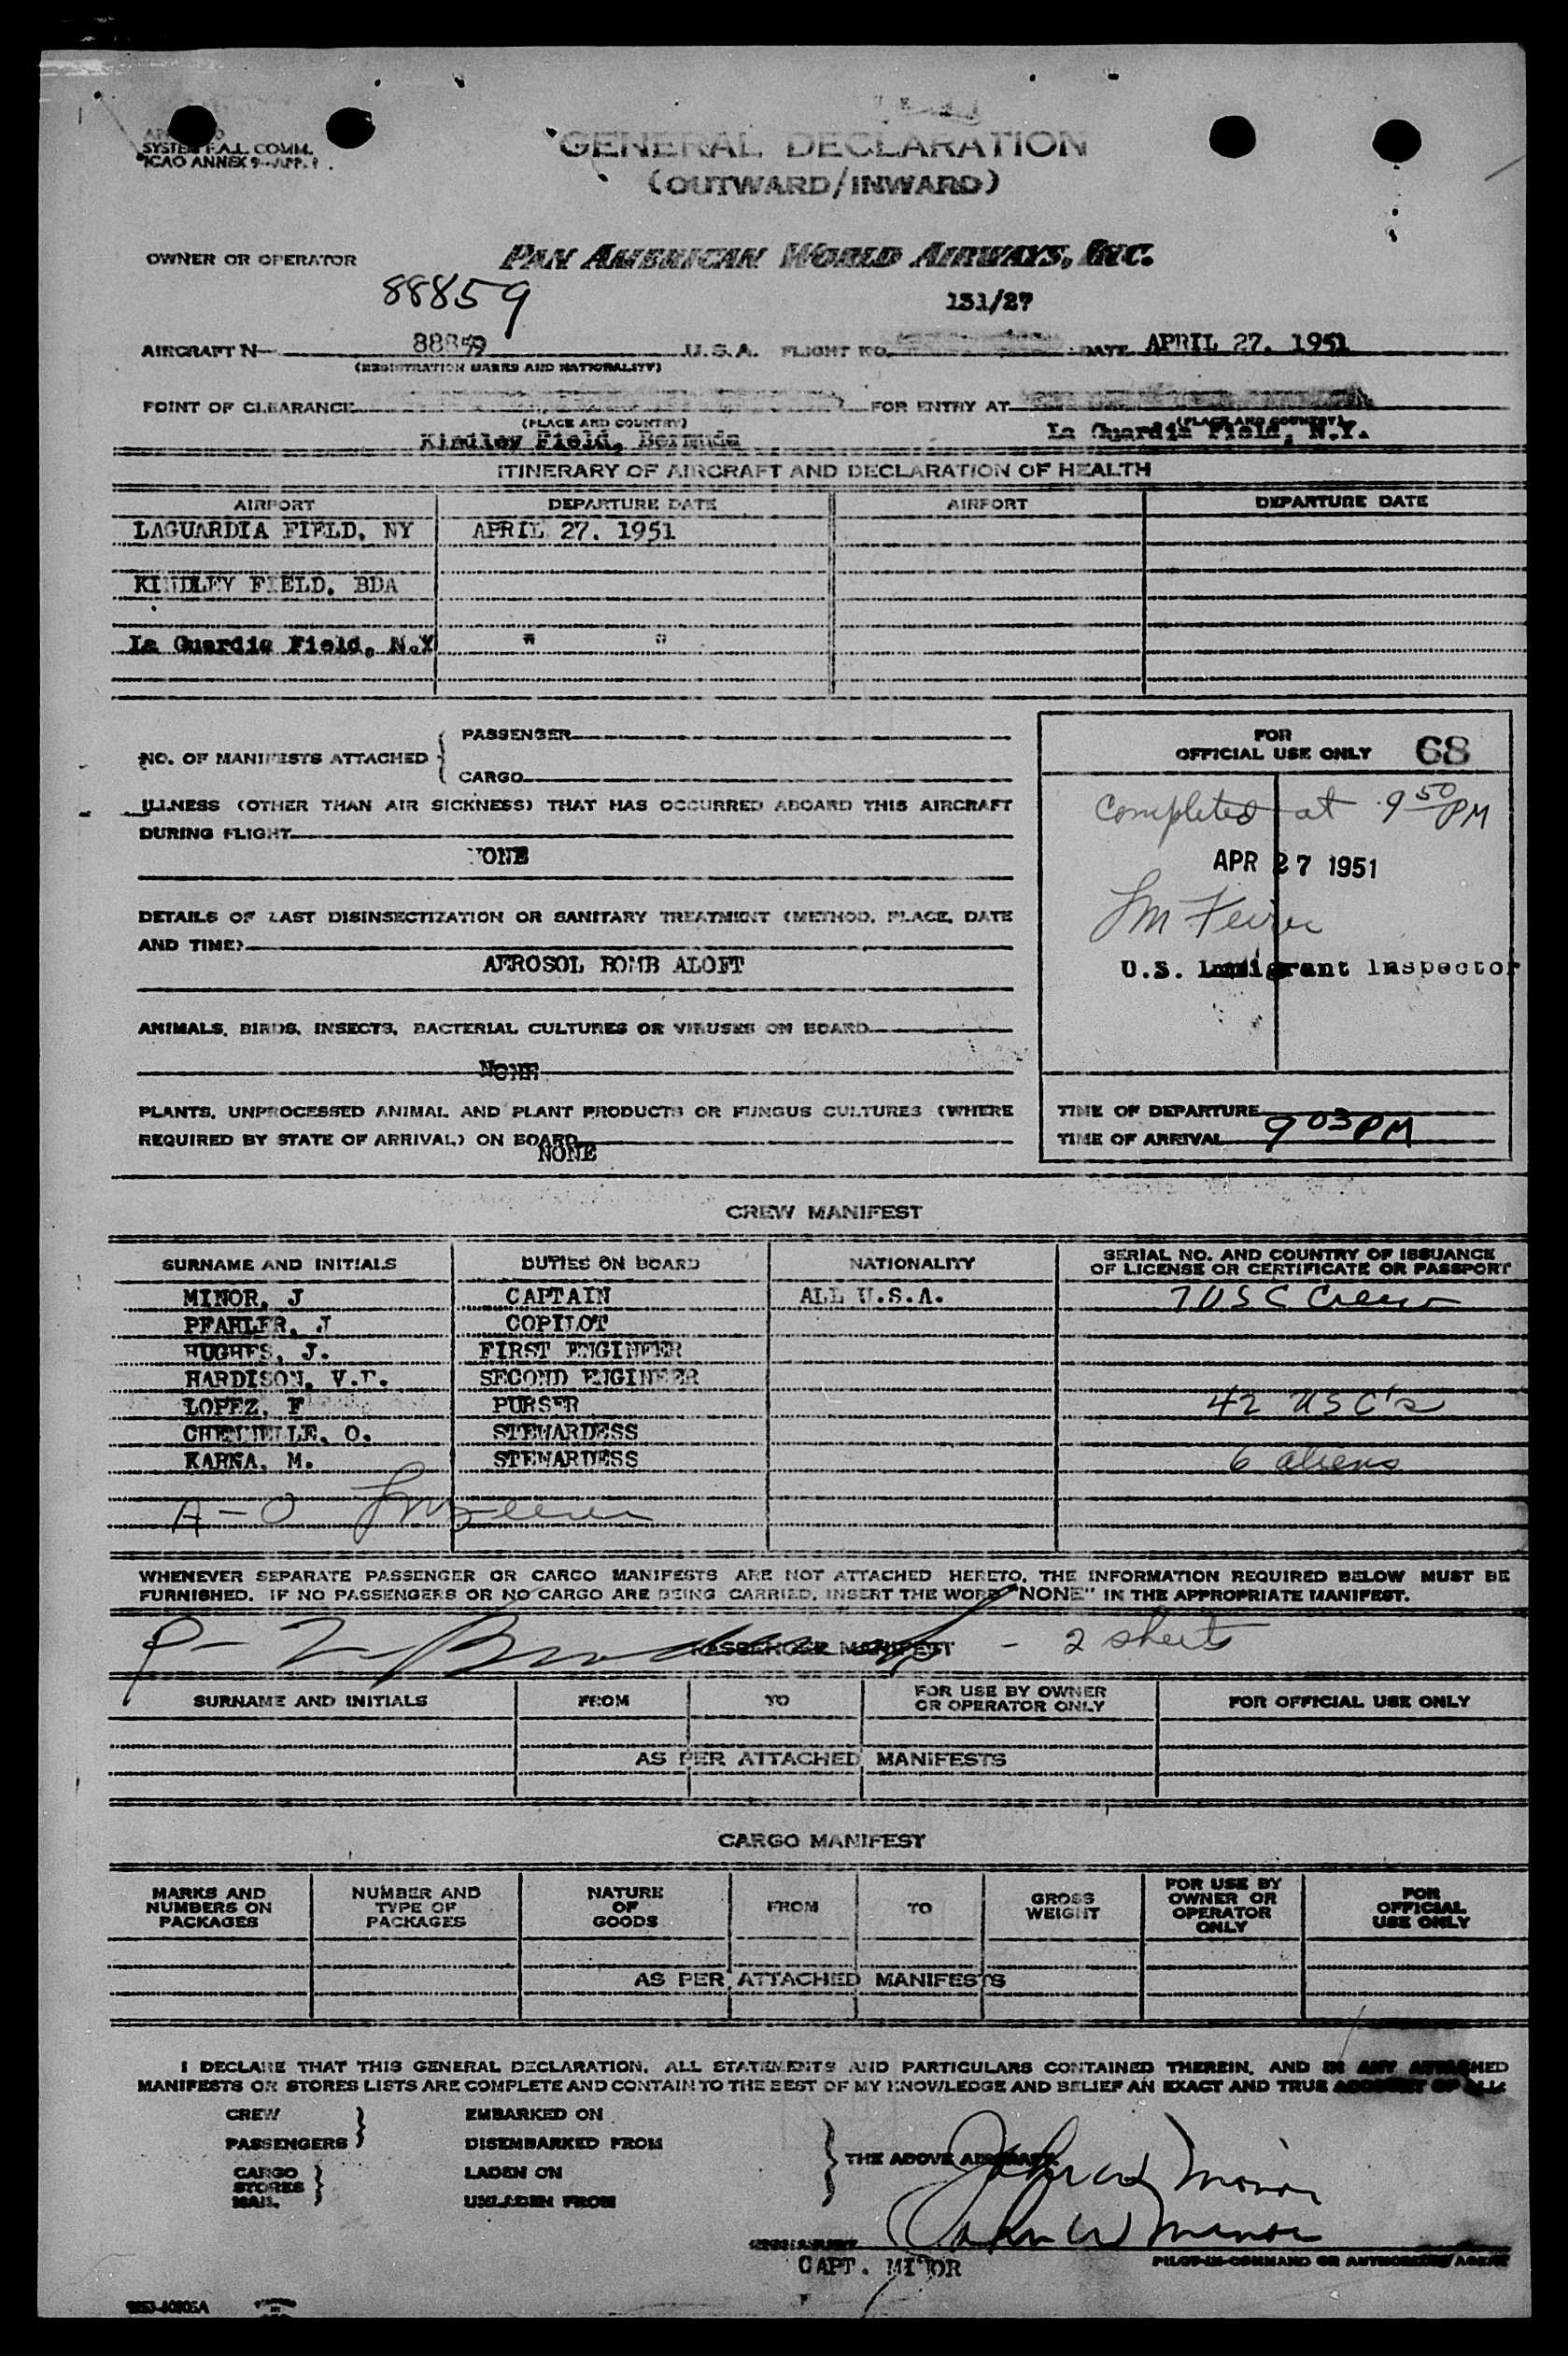 SYSTEM F.A.L. COMM.
ICAO ANNEX 9-APP. 1
GENERAL DECLARATION
(OUTWARD/INWARD)
OWNER OR OPERATOR PAN AMERICAN WORLD AIRWAYS, INC.
88859 131/27
AIRCRAFT N 88859 U.S.A. FLIGHT NO. DATE APRIL 27, 1951
(REGISTRATION MARKS AND NATIONALITY)
POINT OF CLEARANCE FOR ENTRY AT
(PLACE AND COUNTRY) (PLACE AND COUNTRY)
Kindley Field, Bermuda La Guardia Field, N.Y.
ITINERARY OF AIRCRAFT AND DECLARATION OF HEALTH
AIRPORT DEPARTURE DATE AIRPORT DEPARTURE DATE
LAGUARDIA FIELD, NY APRIL 27, 1951
KINDLEY FIELD, BDA
La Guardia Field, N.Y " "
NO. OF MANIFESTS ATTACHED { PASSENGER
CARGO
ILLNESS (OTHER THAN AIR SICKNESS) THAT HAS OCCURRED ABOARD THIS AIRCRAFT
DURING FLIGHT
NONE
DETAILS OF LAST DISINSECTIZATION OR SANITARY TREATMENT (METHOD, PLACE, DATE
AND TIME)
AEROSOL BOMB ALOFT
ANIMALS, BIRDS, INSECTS, BACTERIAL CULTURES OR VIRUSES ON BOARD
NONE
PLANTS, UNPROCESSED ANIMAL AND PLANT PRODUCTS OR FUNGUS CULTURES (WHERE
REQUIRED BY STATE OF ARRIVAL) ON BOARD
NONE
FOR
OFFICIAL USE ONLY 68
Completed at 9 50 PM
APR 27 1951
U.S. Immigrant Inspector
TIME OF DEPARTURE
TIME OF ARRIVAL 9 03 PM
CREW MANIFEST
SURNAME AND INITIALS DUTIES ON BOARD NATIONALITY SERIAL NO. AND COUNTRY OF ISSUANCE
OF LICENSE OR CERTIFICATE OR PASSPORT
MINOR, J CAPTAIN ALL U.S.A. 7 USC Crew
PFAHLER, J COPILOT
HUGHES, J. FIRST ENGINEER
HARDISON, SECOND ENGINEER
LOPEZ, F PURSER 42 USC's
O. STEWARDESS
KARNA, M. STEWARDESS 6 aliens
A - O
WHENEVER SEPARATE PASSENGER OR CARGO MANIFESTS ARE NOT ATTACHED HERETO, THE INFORMATION REQUIRED BELOW MUST BE
FURNISHED. IF NO PASSENGERS OR NO CARGO ARE BEING CARRIED, INSERT THE WORD "NONE" IN THE APPROPRIATE MANIFEST.
P - 2 PASSENGER MANIFEST - 2 sheets
SURNAME AND INITIALS FROM TO FOR USE BY OWNER
OR OPERATOR ONLY FOR OFFICIAL USE ONLY
AS PER ATTACHED MANIFESTS
CARGO MANIFEST
MARKS AND
NUMBERS ON
PACKAGES NUMBER AND
TYPE OF
PACKAGES NATURE
OF
GOODS FROM TO GROSS
WEIGHT FOR USE BY
OWNER OR
OPERATOR
ONLY FOR
OFFICIAL
USE ONLY
AS PER ATTACHED MANIFESTS
I DECLARE THAT THIS GENERAL DECLARATION, ALL STATEMENTS AND PARTICULARS CONTAINED THEREIN, AND IN ANY ATTACHED
MANIFESTS OR STORES LISTS ARE COMPLETE AND CONTAIN TO THE BEST OF MY KNOWLEDGE AND BELIEF AN EXACT AND TRUE ACCOUNT OF ALL:
CREW EMBARKED ON
PASSENGERS } DISEMBARKED FROM
CARGO LADEN ON
STORES
MAIL } UNLADEN FROM
} THE ABOVE AIRCRAFT.
John W Minor
John W Minor
SIGNATURE
CAPT. MINOR PILOT-IN-COMMAND OR AUTHORIZED AGENT